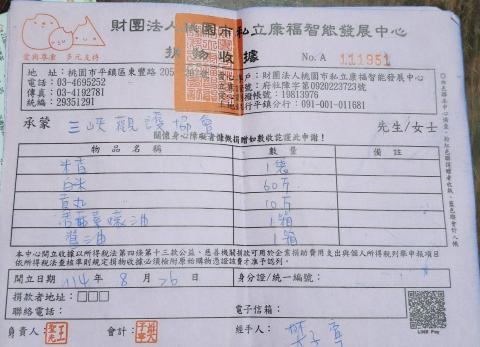 財團法人桃園市私立康福智能發展中心
捐物收據
No. A 111951
愛而尊重 多元支持
地 址：桃園市平鎮區東豐路205
電話：03-4695252
傳真：03-4192781
統編：29351291
戶：財團法人桃園市私立康福智能發展中心
號：府社障字第0920223723號
撥帳號：19813976
行平鎮分行：091-001-011681
承蒙 三峽觀護協會 先生/女士
關懷身心障礙者慷慨捐贈如數收訖謹此申謝！
物品名稱 數量 備註
1袋
白米 60斤
貢丸 10斤
1箱
醬油 1箱
本中心開立收據以所得稅法第四條第十三款公益、慈善機關捐款可用於企業捐助費用支出與個人所得稅列舉申報項目
依所得稅法查核準則規定捐物收據必須檢附原始購物憑證該費才准予認列。
開立日期 114年 8月 26日 身分證/統一編號：
捐款者地址：□□□
聯絡電話： 電子信箱：
負責人： 會計： 經手人：
LINE Pay